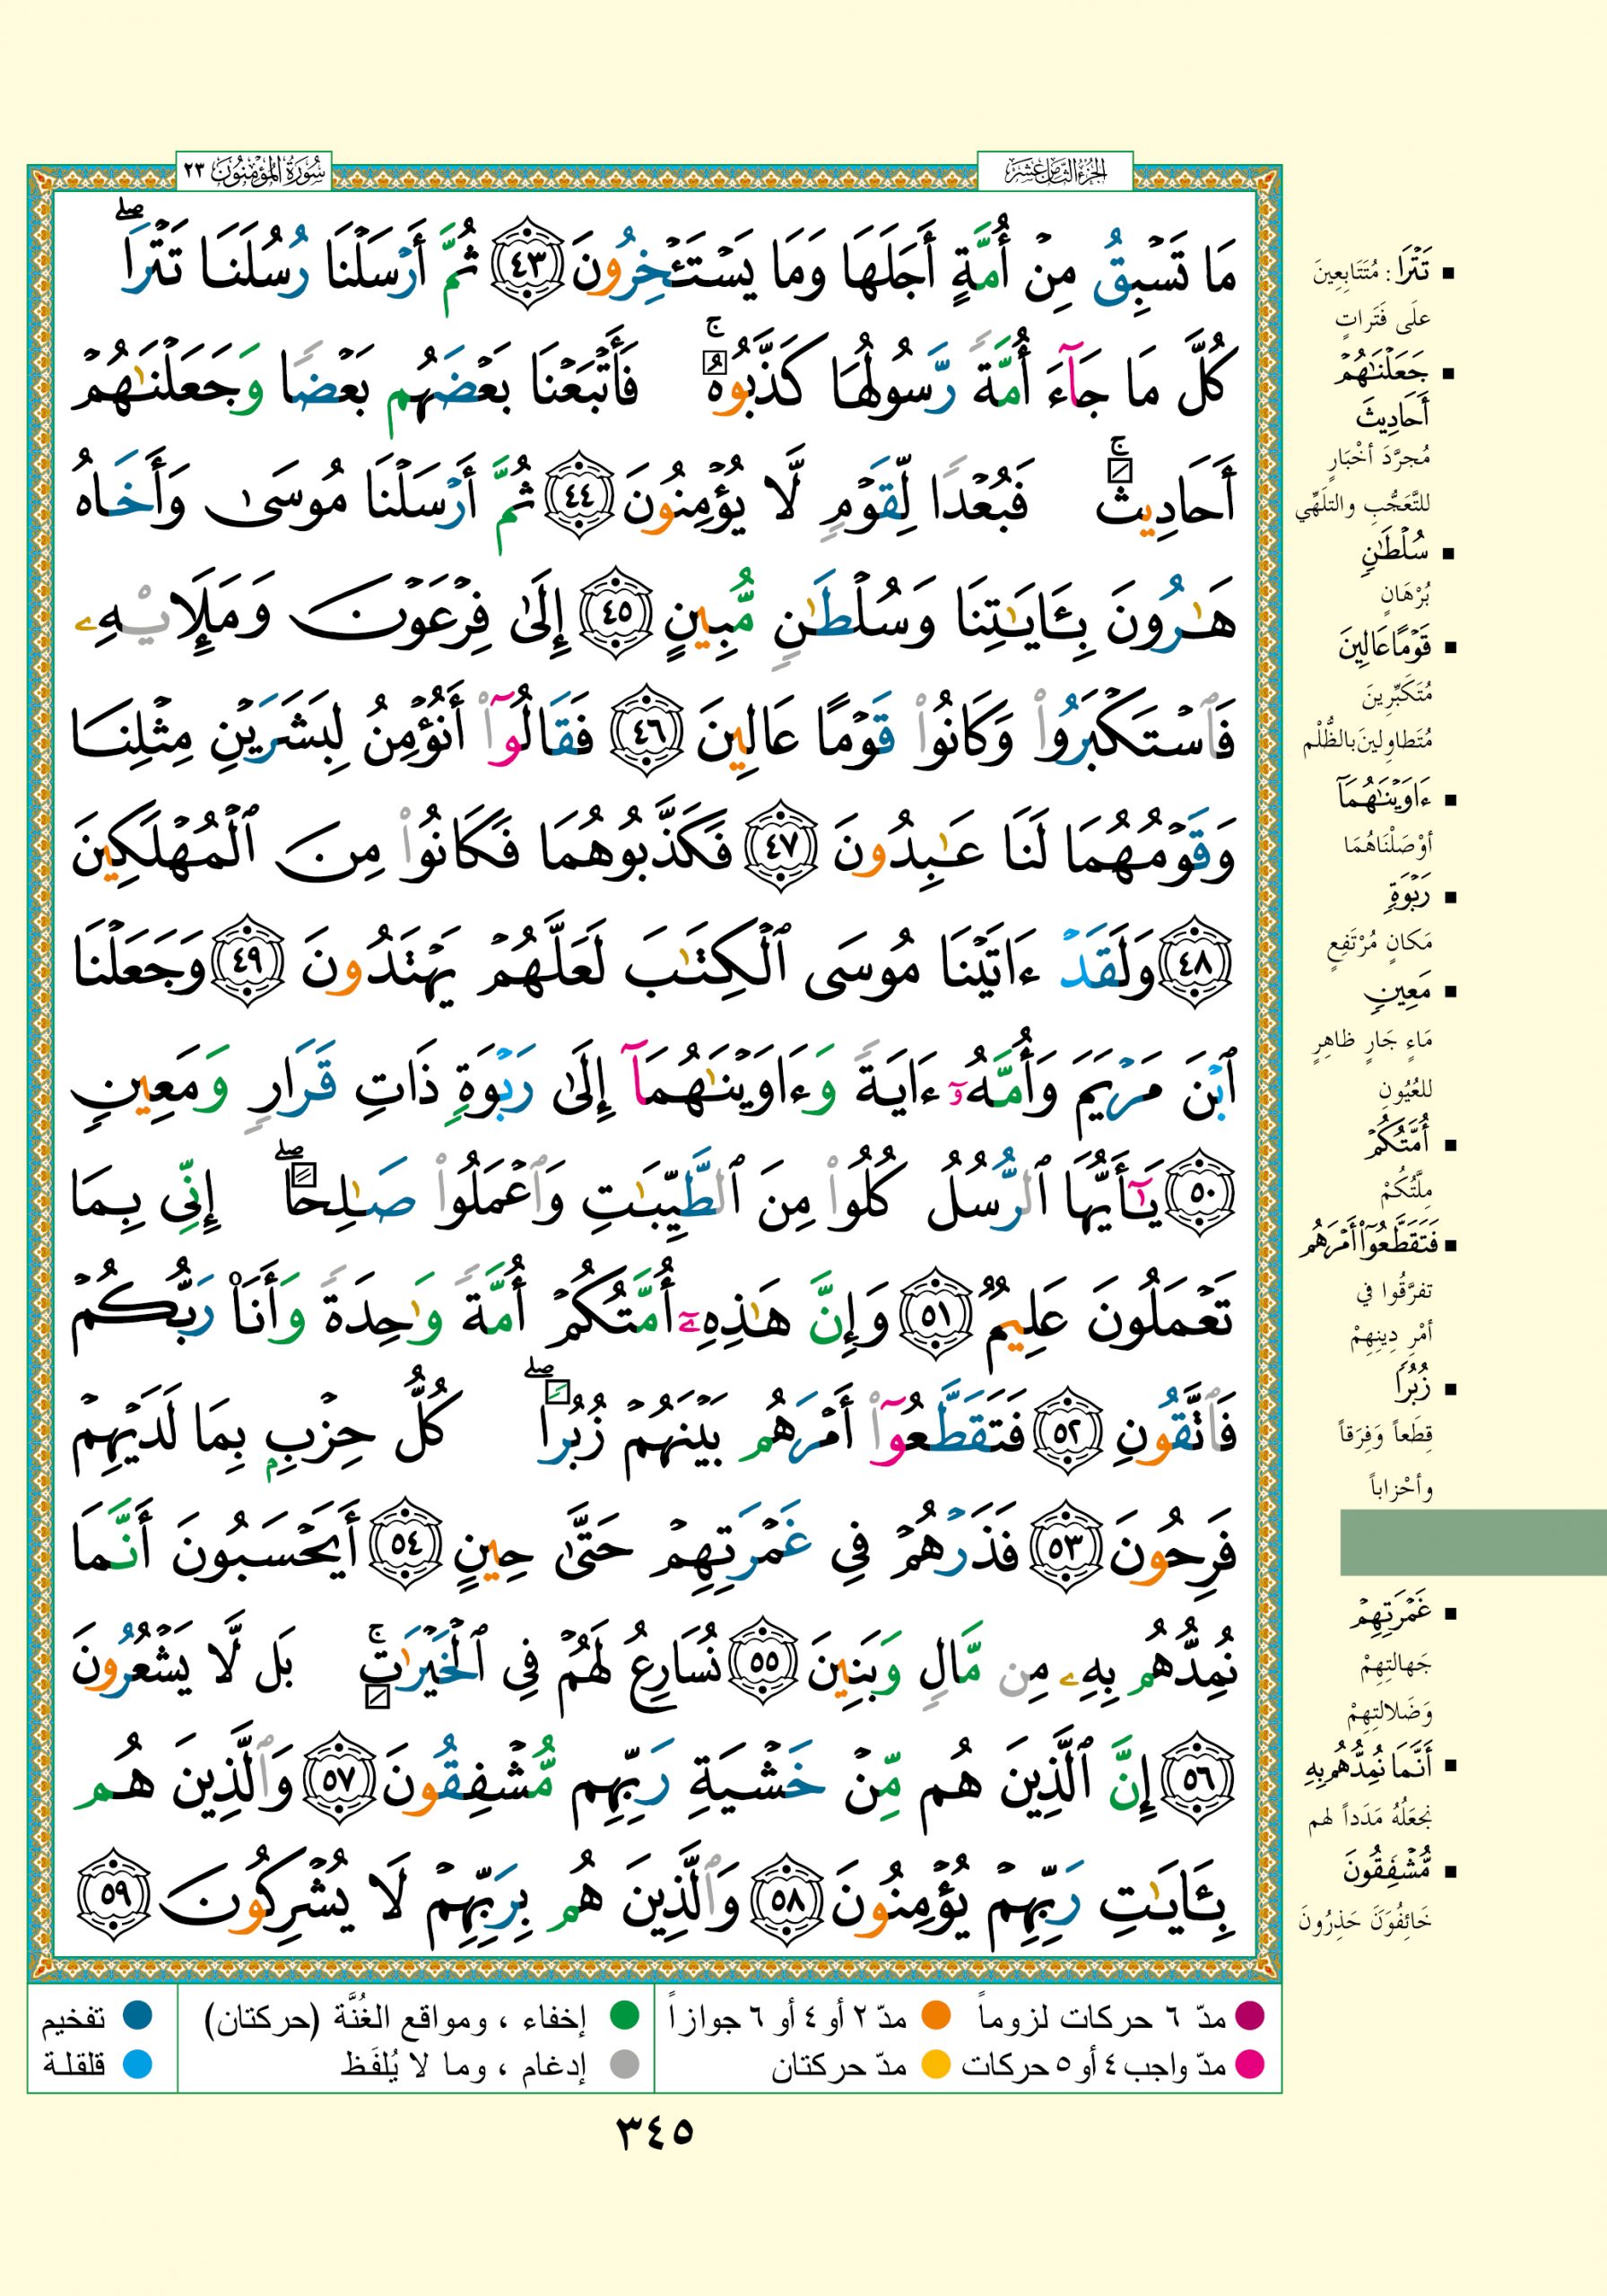 الجزء الثامن عشر
سورة المؤمنون ٢٣
مَا تَسۡبِقُ مِنۡ أُمَّةٍ أَجَلَهَا وَمَا يَسۡتَـٔۡخِرُونَ ٤٣ ثُمَّ أَرۡسَلۡنَا رُسُلَنَا تَتۡرَاۖ
كُلَّ مَا جَآءَ أُمَّةٗ رَّسُولُهَا كَذَّبُوهُۚ فَأَتۡبَعۡنَا بَعۡضَهُم بَعۡضٗا وَجَعَلۡنَٰهُمۡ
أَحَادِيثَۚ فَبُعۡدٗا لِّقَوۡمٖ لَّا يُؤۡمِنُونَ ٤٤ ثُمَّ أَرۡسَلۡنَا مُوسَىٰ وَأَخَاهُ
هَٰرُونَ بِـَٔايَٰتِنَا وَسُلۡطَٰنٖ مُّبِينٍ ٤٥ إِلَىٰ فِرۡعَوۡنَ وَمَلَإِيْهِۦ
فَٱسۡتَكۡبَرُواْ وَكَانُواْ قَوۡمًا عَالِينَ ٤٦ فَقَالُوٓاْ أَنُؤۡمِنُ لِبَشَرَيۡنِ مِثۡلِنَا
وَقَوۡمُهُمَا لَنَا عَٰبِدُونَ ٤٧ فَكَذَّبُوهُمَا فَكَانُواْ مِنَ ٱلۡمُهۡلَكِينَ
٤٨ وَلَقَدۡ ءَاتَيۡنَا مُوسَى ٱلۡكِتَٰبَ لَعَلَّهُمۡ يَهۡتَدُونَ ٤٩ وَجَعَلۡنَا
ٱبۡنَ مَرۡيَمَ وَأُمَّهُۥٓ ءَايَةٗ وَءَاوَيۡنَٰهُمَآ إِلَىٰ رَبۡوَةٖ ذَاتِ قَرَارٖ وَمَعِينٖ
٥٠ يَٰٓأَيُّهَا ٱلرُّسُلُ كُلُواْ مِنَ ٱلطَّيِّبَٰتِ وَٱعۡمَلُواْ صَٰلِحًاۖ إِنِّي بِمَا
تَعۡمَلُونَ عَلِيمٞ ٥١ وَإِنَّ هَٰذِهِۦٓ أُمَّتُكُمۡ أُمَّةٗ وَٰحِدَةٗ وَأَنَا۠ رَبُّكُمۡ
فَٱتَّقُونِ ٥٢ فَتَقَطَّعُوٓاْ أَمۡرَهُم بَيۡنَهُمۡ زُبُرٗاۖ كُلُّ حِزۡبِۭ بِمَا لَدَيۡهِمۡ
فَرِحُونَ ٥٣ فَذَرۡهُمۡ فِي غَمۡرَتِهِمۡ حَتَّىٰ حِينٍ ٥٤ أَيَحۡسَبُونَ أَنَّمَا
نُمِدُّهُم بِهِۦ مِن مَّالٖ وَبَنِينَ ٥٥ نُسَارِعُ لَهُمۡ فِي ٱلۡخَيۡرَٰتِۚ بَل لَّا يَشۡعُرُونَ
٥٦ إِنَّ ٱلَّذِينَ هُم مِّنۡ خَشۡيَةِ رَبِّهِم مُّشۡفِقُونَ ٥٧ وَٱلَّذِينَ هُم
بِـَٔايَٰتِ رَبِّهِمۡ يُؤۡمِنُونَ ٥٨ وَٱلَّذِينَ هُم بِرَبِّهِمۡ لَا يُشۡرِكُونَ ٥٩
تَتۡرَا : مُتَتَابِعِينَ
علَى فَتَراتٍ
جَعَلۡنَٰهُمۡ
أَحَادِيثَ
مُجرَّدَ أخْبَارٍ
للتَّعَجُّبِ والتلَهِّي
سُلۡطَٰنٖ
بُرْهَانٍ
قَوۡمًا عَالِينَ
مُتَكَبِّرِينَ
مُتَطاوِلِينَ بالظُّلْم
ءَاوَيۡنَٰهُمَآ
أوْصَلْنَاهُمَا
رَبۡوَةٖ
مَكانٍ مُرْتَفِعٍ
مَعِينٖ
مَاءٍ جَارٍ ظاهِرٍ
للعُيُونِ
أُمَّتُكُمۡ
مِلَّتُكُمْ
فَتَقَطَّعُوٓاْ أَمۡرَهُم
تفرَّقُوا في
أمْرِ دِينِهِمْ
زُبُرٗا
قِطَعاً وَفِرَقاً
وأحْزاباً
غَمۡرَتِهِمۡ
جَهالتِهِمْ
وَضَلالتِهِمْ
أَنَّمَا نُمِدُّهُم بِهِ
نجعَلُهُ مَدَداً لهم
مُّشۡفِقُونَ
خَائِفُونَ حَذِرُونَ
مدّ ٦ حركات لزوماً مدّ ٢ أو ٤ أو ٦ جوازاً إخفاء ، ومواقع الغُنَّة (حركتان) تفخيم
مدّ واجب ٤ أو ٥ حركات مدّ حركتان إدغام ، وما لا يُلفَظ قلقلة
٣٤٥